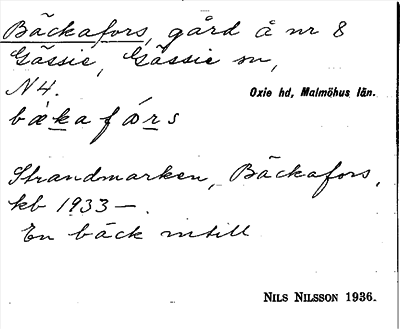 Bäckafors, gård å nr 8
Gässie, Gässie sn,
N4.
Oxie hd, Malmöhus län.
bækafors
Strandmarken, Bäckafors,
kb 1933 —.
En bäck intill
NILS NILSSON 1936.